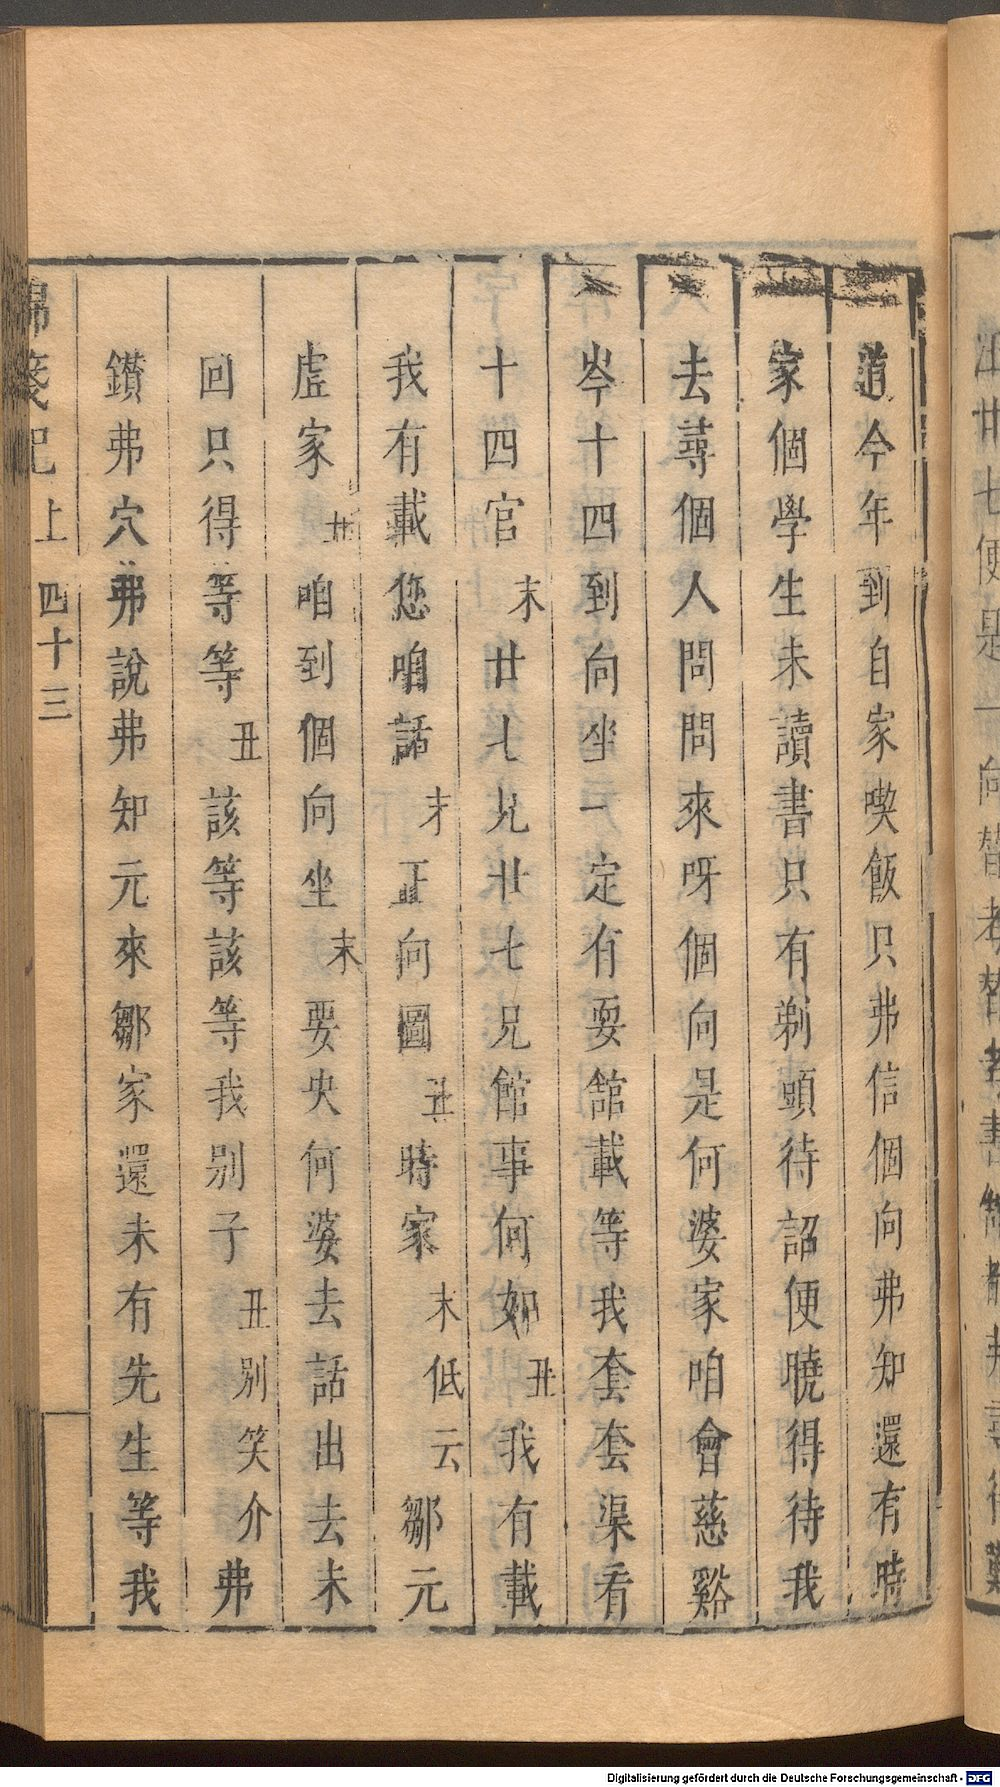 道今年到自家喫飯只弗信個向弗知還有時
家個學生未讀書只有剃頭待詔便曉得待我
去尋個人問問來呀個向是何婆家咱會慈谿
岑十四到向坐一定有耍舘載等我套套渠看
十四官末廿七兄廿七兄館事何如丑我有載
我有載您咱話末正向圖丑時家末低云鄒元
虛家丑咱到個向坐末要央何婆去話出去未
回只得等等丑該等該等我别子丑别笑介弗
鑚弗穴弗說弗知元來鄒家還未有先生等我
錦箋記上 四十三
Digitalisierung gefördert durch die Deutsche Forschungsgemeinschaft - DFG